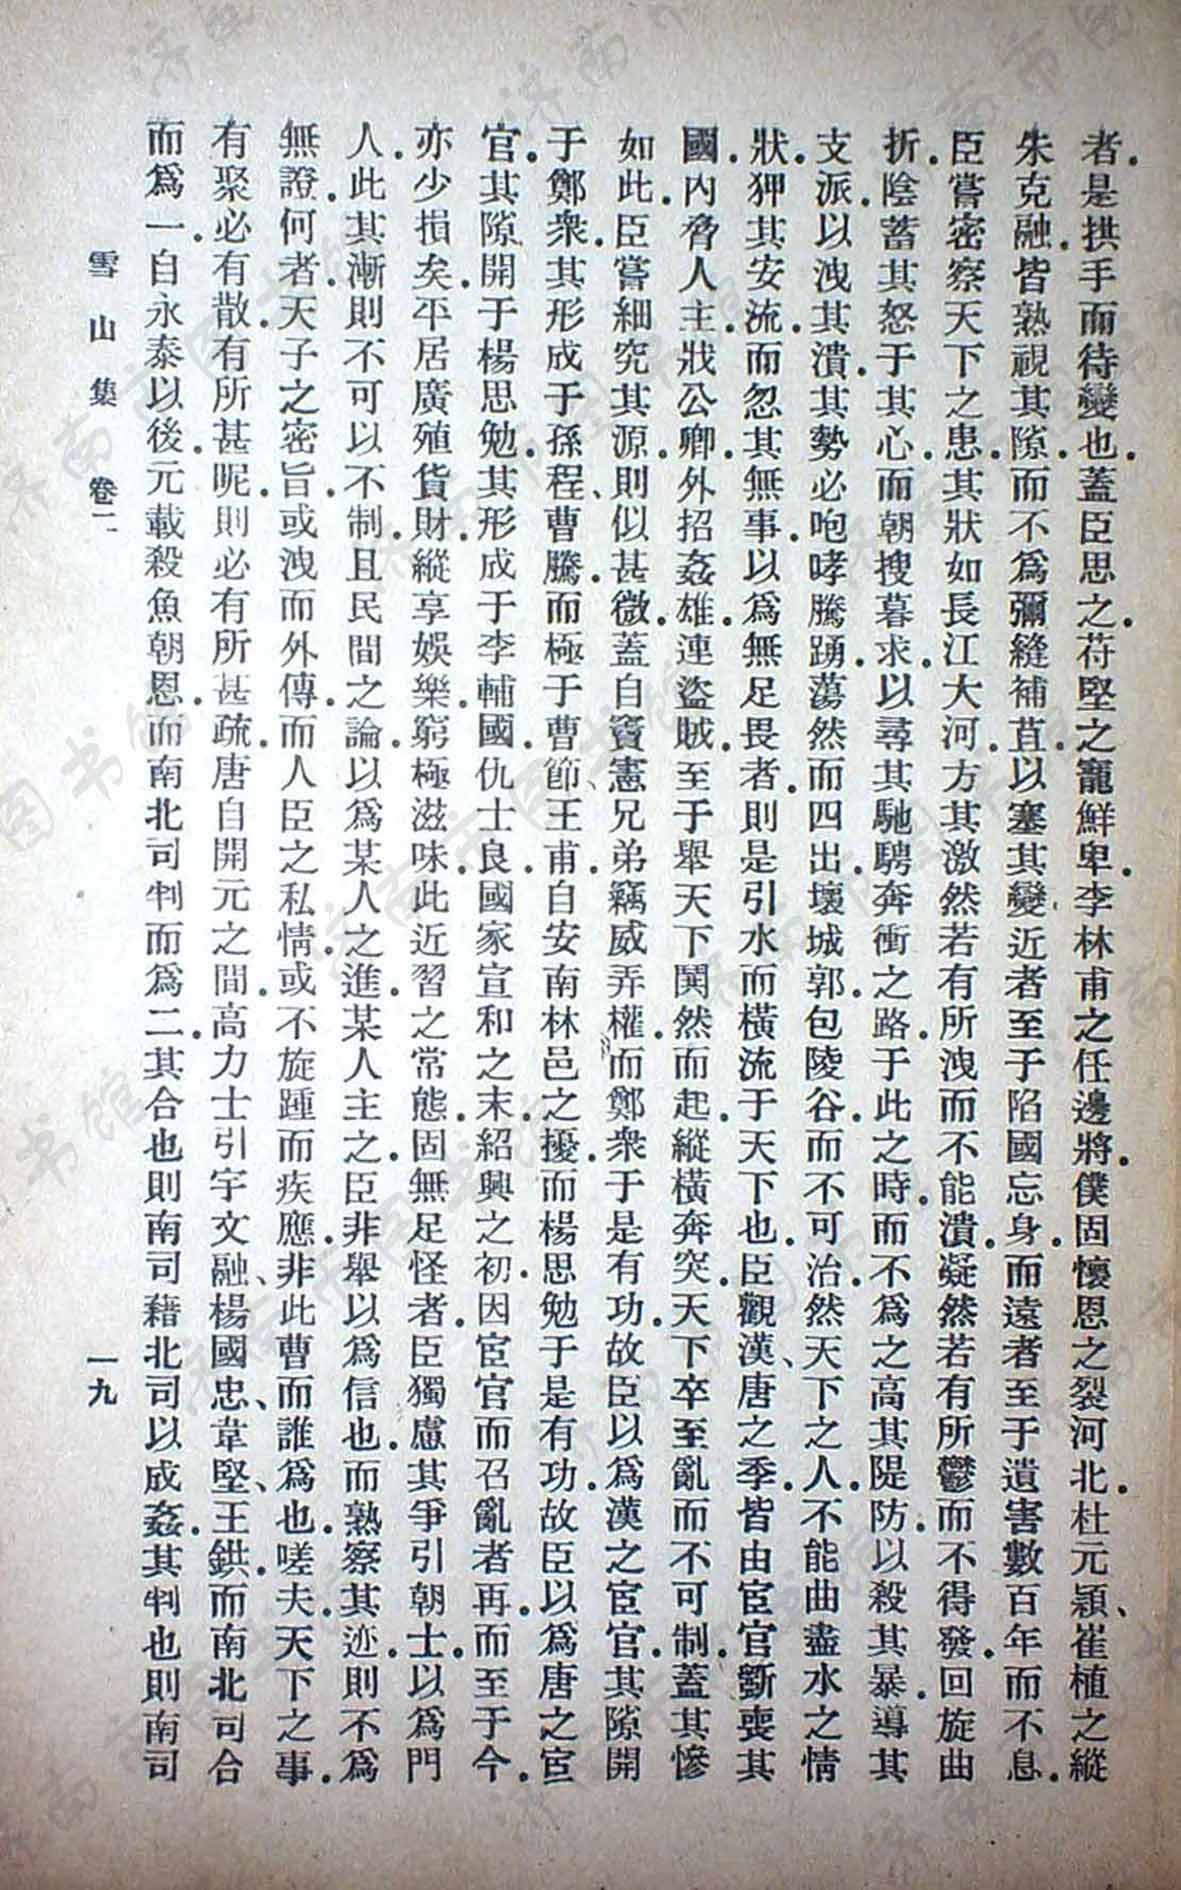 者.是拱手而待變也.蓋臣思之.苻堅之寵鮮卑.李林甫之任邊將.僕固懷恩之裂河北.杜元穎、崔植之縱
朱克融.皆熟視其隙.而不爲彌縫補苴.以塞其變.近者至于陷國忘身.而遠者至于遺害數百年而不息.
臣嘗密察天下之患.其狀如長江大河.方其激然若有所洩而不能潰.凝然若有所鬱而不得發.回旋曲
折.陰蓄其怒于其心.而朝搜暮求.以尋其馳騁奔衝之路.于此之時.而不爲之高其隄防.以殺其暴.導其
支派.以洩其潰.其勢必咆哮騰踴.蕩然而四出.壞城郭.包陵谷.而不可治.然天下之人.不能曲盡水之情
狀.狎其安流.而忽其無事.以爲無足畏者.則是引水而橫流于天下也.臣觀漢、唐之季.皆由宦官斵喪其
國.內脅人主.狀公卿.外招姦雄.連盜賊.至于舉天下鬨然而起.縱橫奔突.天下卒至亂而不可制.蓋其慘
如此.臣嘗細究其源.則似甚微.蓋自竇憲兄弟竊威弄權.而鄭衆于是有功.故臣以爲漢之宦官.其隙開
于鄭衆.其形成于孫程、曹騰.而極于曹節、王甫.自安南林邑之擾.而楊思勉于是有功.故臣以爲唐之宦
官.其隙開于楊思勉.其形成于李輔國.仇士良.國家宣和之末.紹興之初.因宦官而召亂者再.而至于今.
亦少損矣.平居廣殖貨財.縱享娛樂.窮極滋味.此近習之常態.固無足怪者.臣獨慮其爭引朝士.以爲門
人.此其漸則不可以不制.且民間之論.以爲某人之進.某人主之.臣非舉以爲信也.而熟察其迹.則不爲
無證.何者.天子之密旨.或洩而外傳.而人臣之私情.或不旋踵而疾應.非此曹而誰爲也.嗟夫.天下之事.
有聚必有散.有所甚昵.則必有所甚疏.唐自開元之間.高力士引宇文融、楊國忠、韋堅、王鉷.而南北司合
而爲一.自永泰以後.元載殺魚朝恩.而南北司判而爲二.其合也則南司藉北司以成姦.其判也則南司
雪山集 卷二 一九